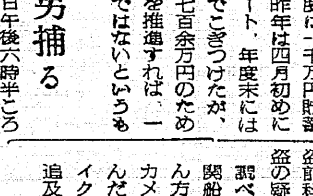 度に一千万円貯蓄
昨年は四月初めに
ート、年度末には
でこぎつけたが、
七百余万円のため
を推進すれば、一
ではないというも
男捕る
日午後六時半ころ
盗前科
盗の疑
調べ
関船
ん方
カメ
んだ
イク
追及